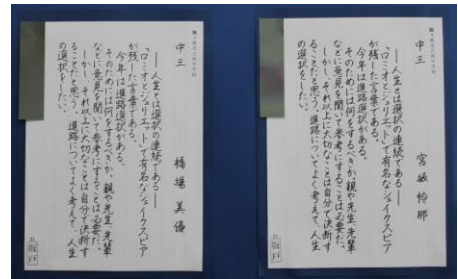 中三
宮
――人生とは選択の連続である――
「ロミオとジュリエット」で有名なシェイクスピア
が残した言葉である。
今年は進路選択がある。
そのためには何をするべきか、親や先生、先輩
などに意見を聞いて参考にすることは必要だ。
しかし、それ以上に大切なことは自分で決断す
ることだと思う。進路についてよく考えて、人生
の選択をしたい。
坂戸
中三
橋場 美優
――人生とは選択の連続である――
「ロミオとジュリエット」で有名なシェイクスピア
が残した言葉である。
今年は進路選択がある。
そのためには何をするべきか、親や先生、先輩
などに意見を聞いて参考にすることは必要だ。
しかし、それ以上に大切なことは自分で決断す
ることだと思う。進路についてよく考えて、人生
の選択をしたい。
坂戸